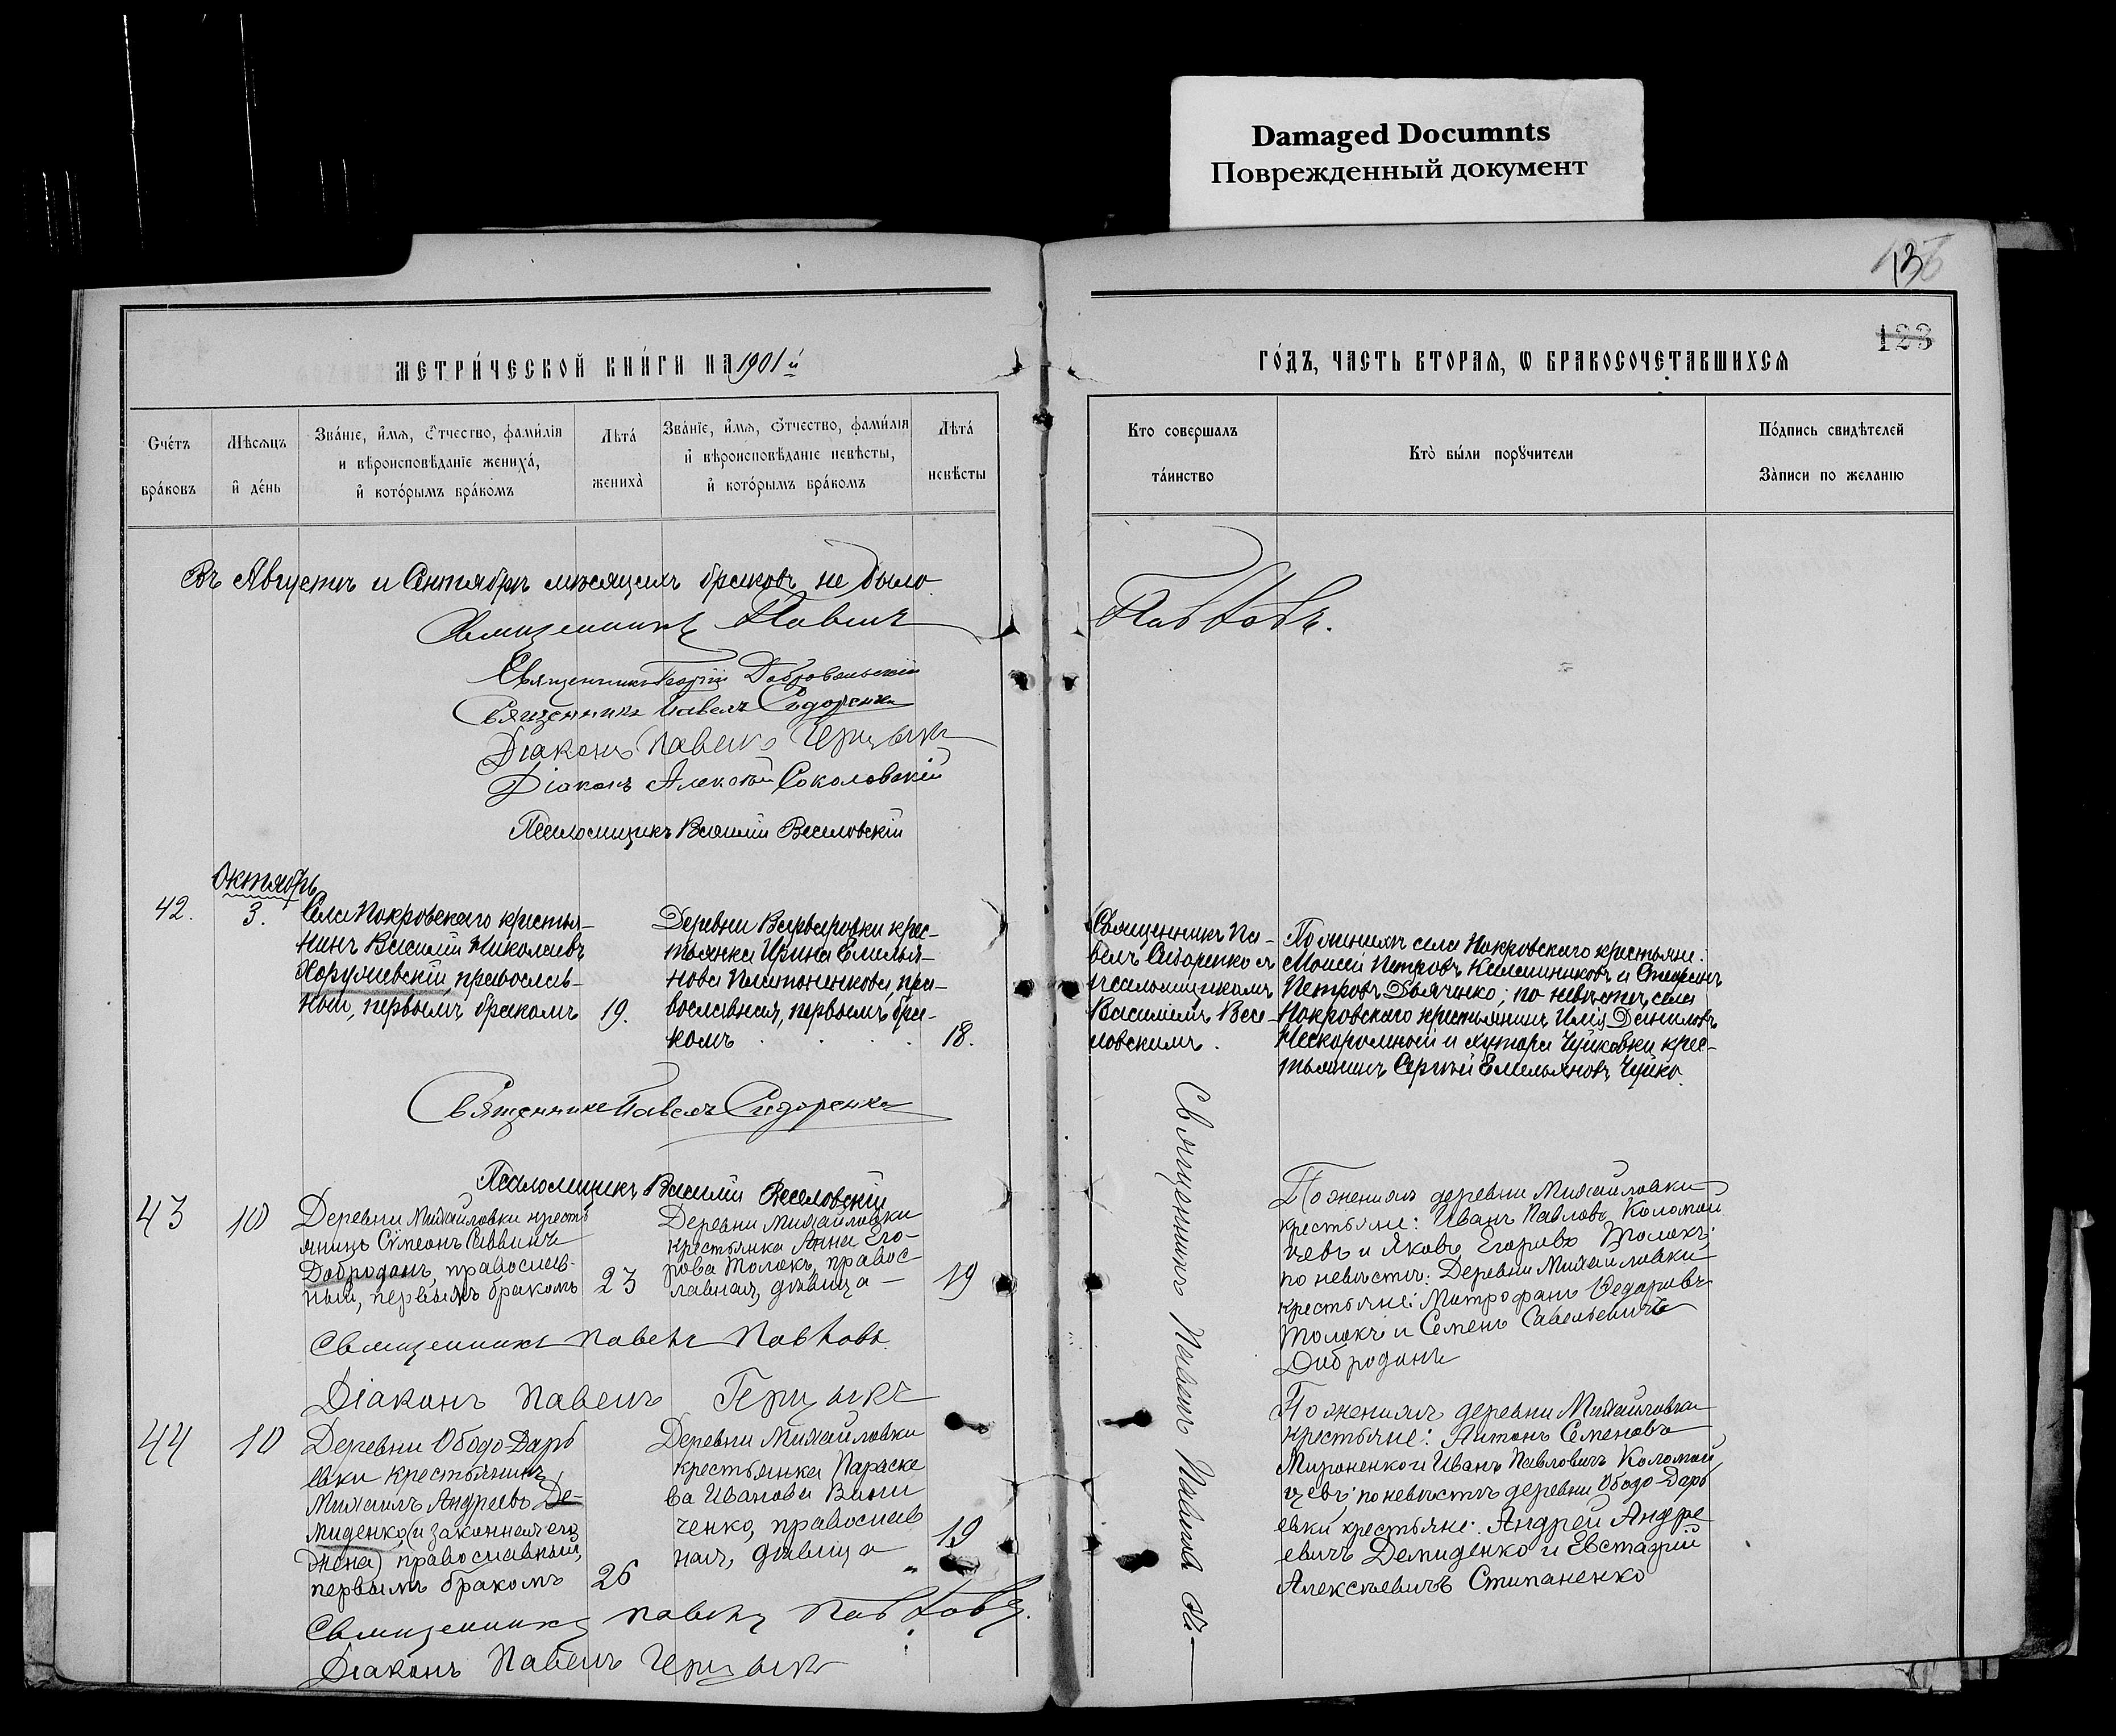 Damaged Documnts
Поврежденный документ
136
123
МЕТРИ́ЧЕСКОЙ КНИ́ГИ НА 1901й
ГО́ДЪ, ЧАСТЬ ВТОРАЯ, Ѡ БРАКОСОЧЕТАВШИХСЯ
Счетъ браковъ
Мѣсяцъ и день
Званіе, имя, отчество, фамилія
и вѣроисповѣданіе жениха,
и которымъ бракомъ
Лѣта жениха
Званіе, имя, отчество, фамилія
и вѣроисповѣданіе невѣсты,
и которымъ бракомъ
Лѣта невѣсты
Кто совершалъ таинство
Кто были поручители
Подпись свидѣтелей Записи по желанію
Въ Августѣ и Сентябрѣ мѣсяцахъ браковъ не было.
Священникъ Павелъ Павловъ.
Священникъ Георгій Добровольскій
Священникъ Павелъ Сидоренко
Діаконъ Павелъ
Діаконъ Алексѣй Соколовскій
Псаломщикъ Василій Веселовскій
Октябрь
42.
3.
Села Покровскаго крестья-
нинъ Василій Николаевъ
Хорунжевскій, православ-
ный, первымъ бракомъ
19.
Деревни Варваровки крес-
тьянка Ирина Емелья-
нова Платоненкова, пра-
вославная, первымъ бра-
комъ
18.
Священникъ Па-
велъ Сидоренко съ
псаломщикомъ
Василіемъ Весе-
ловскимъ.
По женихѣ села Покровскаго крестьяне:
Моисей Петровъ Калашниковъ и Стефанъ
Петровъ Дьяченко; по невѣстѣ, села
Покровскаго крестьянинъ Илія Даниловъ
Нескоромной и хутора Чуйковки крес-
тьянинъ Сергій Емельяновъ Чуйко.
Священникъ Павелъ Сидоренко
Псаломщикъ Василій Веселовскій
43
10
Деревни Михайловки кресть
янинъ Сѵмеонъ Саввинъ
Доброданъ, православ-
ный, первымъ бракомъ
23
Деревни Михайловки
крестьянка Анна Его-
рова Толокъ, правос-
лавная, дѣвица
19
Священникъ Павелъ Павловъ
По женихѣ деревни Михайловки
крестьяне: Иванъ Павловъ Коломой
цевъ и Яковъ Егоровъ Толокъ;
по невѣстѣ: Деревни Михайловки
крестьяне: Митрофанъ Ѳедоровъ
Толокъ и Семенъ Савельевичъ
Доброданъ
Священникъ Павелъ Павловъ
Діаконъ Павелъ
44
10
Деревни Ободо-Дарь
евки крестьянинъ
Михаилъ Андреевъ Де-
миденко (и законная его
жена) православный,
первымъ бракомъ
26
Деревни Михайловки
крестьянка Параске
ва Иванова Вини
ченко, православ
ная, дѣвица
19
По женихѣ деревни Михайловки
крестьяне: Антонъ Семеновъ
Мироненко и Иванъ Павловичъ Коломой
цевъ; по невѣстѣ деревни Ободо-Дарь
евки крестьяне: Андрей Андре
евичъ Демиденко и Евстафій
Алексѣевичъ Стипаненко
Священникъ Павелъ Павловъ.
Діаконъ Павелъ